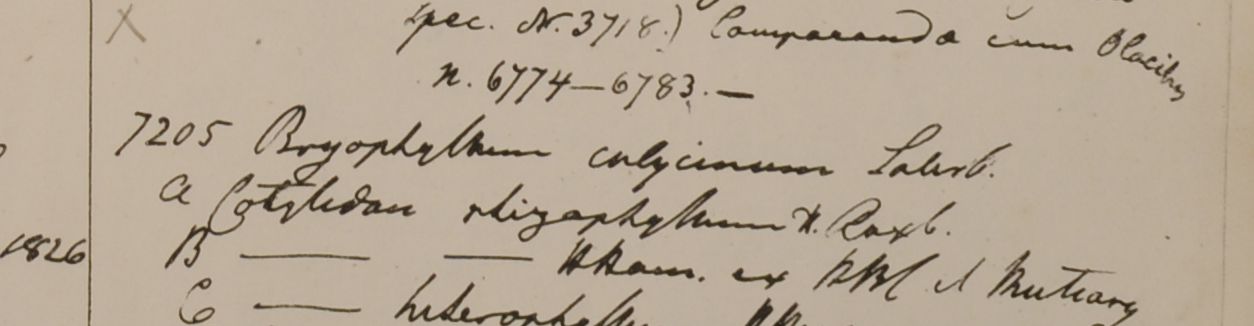 spec. N. 3718.) Comparanda cum Olacibus
n. 6774—6783.—
7205 Bryophyllum calycinum Salisb.
a Cotyledon rhizophyllum H. Roxb.
1826 B —— —— HHam. ex
C —— heterophylla